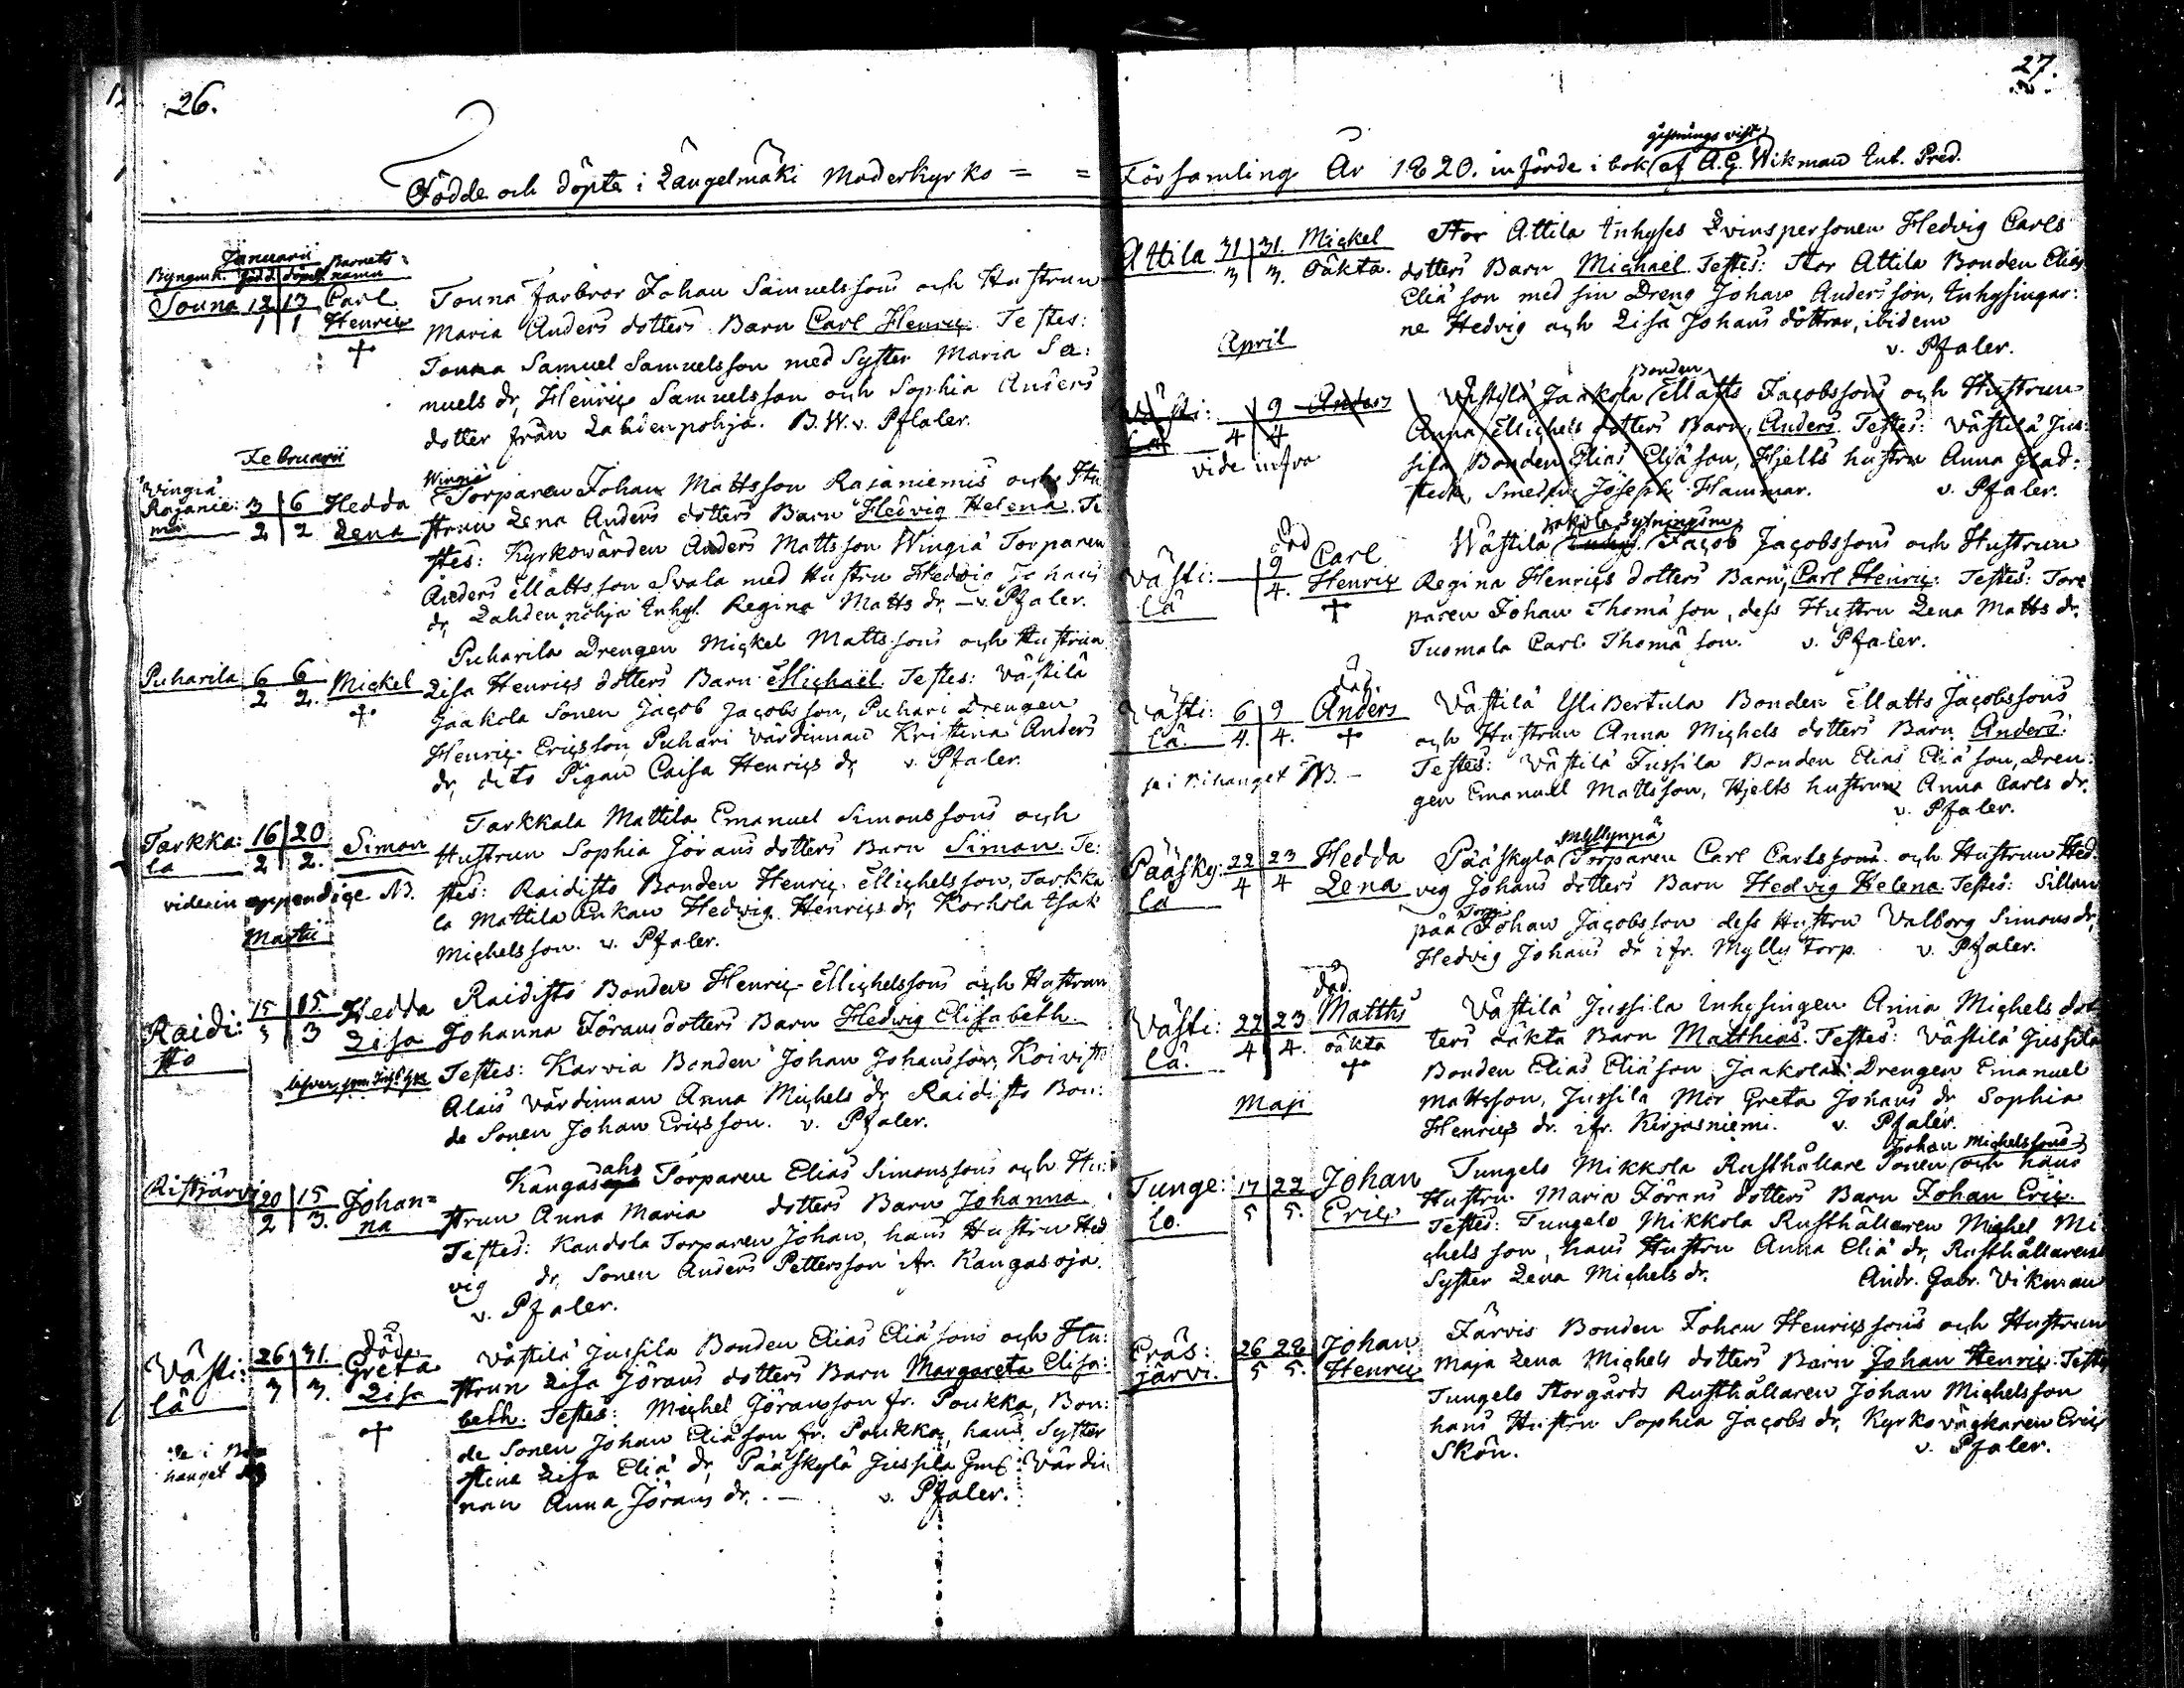 26.
Födde och döpte i Längelmäki Moderkyrko =
Januarii
Byngmh. född. döpt. Barnets namn
Touna 12/1 13/1 Carl Henric +
Touna farbror Johan Samuelssons och Hustrun
Maria Anders dotters Barn Carl Henric. Testes:
Touna Samuel Samuelsson med Syster Maria Sa:
muels dr, Henric Samuelsson och Sophia Anders
dotter från Lahdenpohja. B.W. v. Pfaler.
Februarii
Wingiä Rajanie: mi 3/2 6/2 Hedda Lena
Wingiä
Torparen Johan Mattsson Rajaniemis och Hu
strun Lena Anders dotters Barn Hedvig Helena. Te
stes: Kyrkowärden Anders Mattsson Wingiä Torparen
Anders Mattsson Svala med Hustru Hedvig Johans
dr, Lahdenpohja Inhys. Regina Matts dr, - v. Pfaler.
Puharila 6/2 6/2. Mickel +
Puharila Drengen Mickel Mattssons och Hustrun
Lisa Henrics dotters Barn Michaël. Testes: Västilä
Jaakola Sonen Jacob Jacobsson, Puhari Drengen
Henric Ericsson, Puhari Värdinnan Kristina Anders
dr, dito Pigan Caisa Henrics dr, v. Pfaler.
Tarkka: la 16/2 20/2. Simon
vide in appendice NB.
Tarkkala Mattila Emanuel Simonssons och
Hustrun Sophia Jörans dotters Barn Simon. Te:
stes: Raidisto Bonden Henric Michelsson, Tarkka
la Mattila Enkan Hedvig Henrics dr, Korhola Isak
Michelsson. v. Pfaler.
Martii
Raidi: sto 15/3 15./3 Hedda Lisa
Raidisto Bonden Henric Michelssons och Hustrun
Johanna Jörans dotters Barn Hedvig Elisabeth.
Testes: Karvia Bonden Johan Johansson, Koivisto
Alais Värdinnan Anna Michels dr, Raidisto Bon:
de Sonen Johan Ericsson. v. Pfaler.
Ristjärvi 20/2 15/3. Johan= na
Kangas aho Torparen Elias Simonssons och Hu:
strun Anna Maria dotters Barn Johanna.
Testes: Kandola Torparen Johan, hans Hustru Hed
vig dr, Sonen Anders Pettersson ifr. Kangasoja.
v. Pfaler.
Västi: lä 26/3 31/3. död. Greta Lisa +
Västilä Jussila Bonden Elias Eliæsons och Hu:
strun Lisa Jörans dotters Barn Margareta Elisa:
beth. Testes: Michel Jöransson fr. Poukka, Bon:
de Sonen Johan Eliæson fr. Poukka, hans Syster
Stina Lisa Eliæ dr, Pääskylä Jussila Gml. Värdin
nan Anna Jörans dr. - v. Pfaler.
27.
Församling År 1820. införde i bok af A.G. Wikman Ext. Pred.
Attila 31/3 31./3. Mickel oäkta.
Stor Attila Inhyses Qvinspersonen Hedvig Carls
dotters Barn Michaël. Testes: Stor Attila Bonden Elias
Eliæson med sin Dreng Johan Andersson, Inhysingar:
ne Hedvig och Lisa Johans döttrar, ibidem
v. Pfaler.
April
Västi: lä 4 9/4 Anders
vide infra
Bonden
Västilä Jaakola Matts Jacobssons och Hustrun
Anna Michels dotters Barn, Anders. Testes: Västilä Jus:
sila Bonden Elias Eliæson, Hjelts hustru Anna Glad:
steen, Smeden Joseph Hammar. v. Pfaler.
Västi: lä 9/4. död Carl Henric +
jakola Sytningsm.
Wästilä Inhys. Jacob Jacobssons och Hustrun
Regina Henrics dotters Barn, Carl Henric. Testes: Tor
paren Johan Thomæson, dess Hustru Lena Matts dr.
Tuomala Carl Thomæson. v. Pfaler.
Västi: lä. 6/4. 9/4. död. Anders +
NB. -
Västilä Yli Bertula Bonden Matts Jacobssons
och Hustrun Anna Michels dotters Barn Anders.
Testes: Västilä Jussila Bonden Elias Eliæson, Dren:
gen Emanuel Mattsson, Hjelts hustrun Anna Carls dr.
v. Pfaler.
Pääsky: lä 22/4 23/4 Hedda Lena
Myllynpä
Pääskylä Torparen Carl Carlssons och Hustrun Hed
vig Johans dotters Barn Hedvig Helena. Testes: Sillan
pää Torp. Johan Jacobsson dess Hustru Valborg Simons dr,
Hedvig Johans dr ifr. Mylly Torp. v. Pfaler.
Västi: lä. 22/4 23/4. död. Matths oäkta +
Västilä Jussila Inhysingen Anna Michels dot
ters oäkta Barn Matthias. Testes: Västilä Jussila
Bonden Elias Eliæson, Jaakola Drengen Emanuel
Mattsson, Jussila Mor Greta Johans dr Sophia
Henrics dr. ifr. Kirjasniemi. v. Pfaler.
Maji
Tunge: lo. 17/5 22/5. Johan Eric
Johan Michelssons
Tungelo Mikkola Rusthållare Sonen och hans
Hustru Maria Jörans dotters Barn Johan Eric.
Testes: Tungelo Mikkola Rusthållaren Michel Mi
chelsson, hans Hustru Anna Eliæ dr, Rusthållarens
Syster Lena Michels dr. Andr. Gabr. Vikman
Eräs: järvi. 26/5 28/5. Johan Henric
Järvis Bonden Johan Henricssons och Hustrun
Maja Lena Michels dotters Barn Johan Henric. Testes
Tungelo Storgårds Rusthållaren Johan Michelsson
hans Hustru Sophia Jacobs dr, Kyrkoväcktaren Eric
Skön. v. Pfaler.